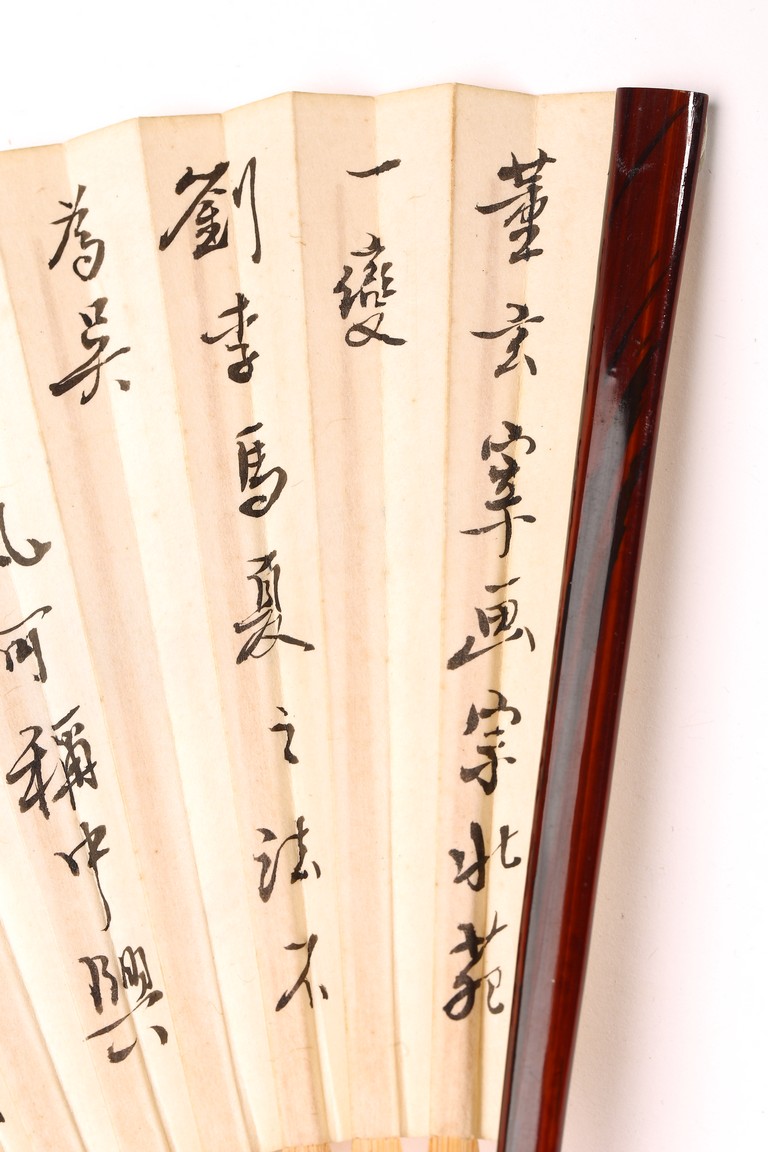 董玄宰画宗北苑
一變
劉李馬夏之法不
為吳
稱中興